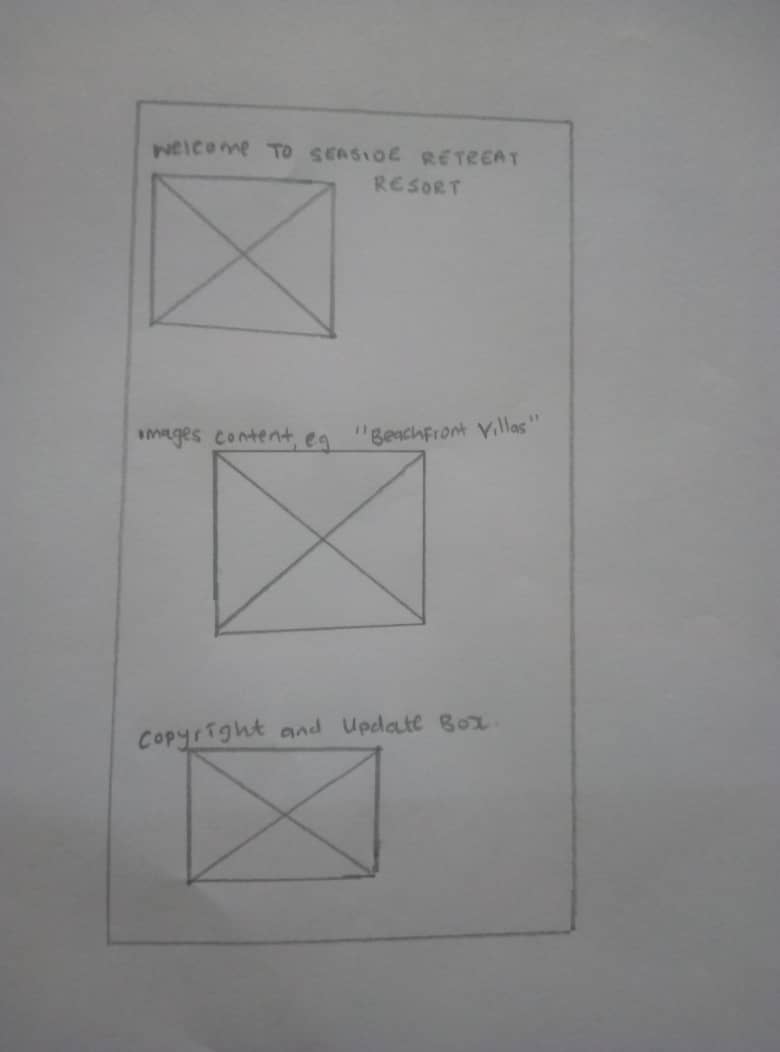 Welcome TO SEASIDE RETREAT
RESORT
images content, eg "BeachFront Villas"
Copyright and Update Box.